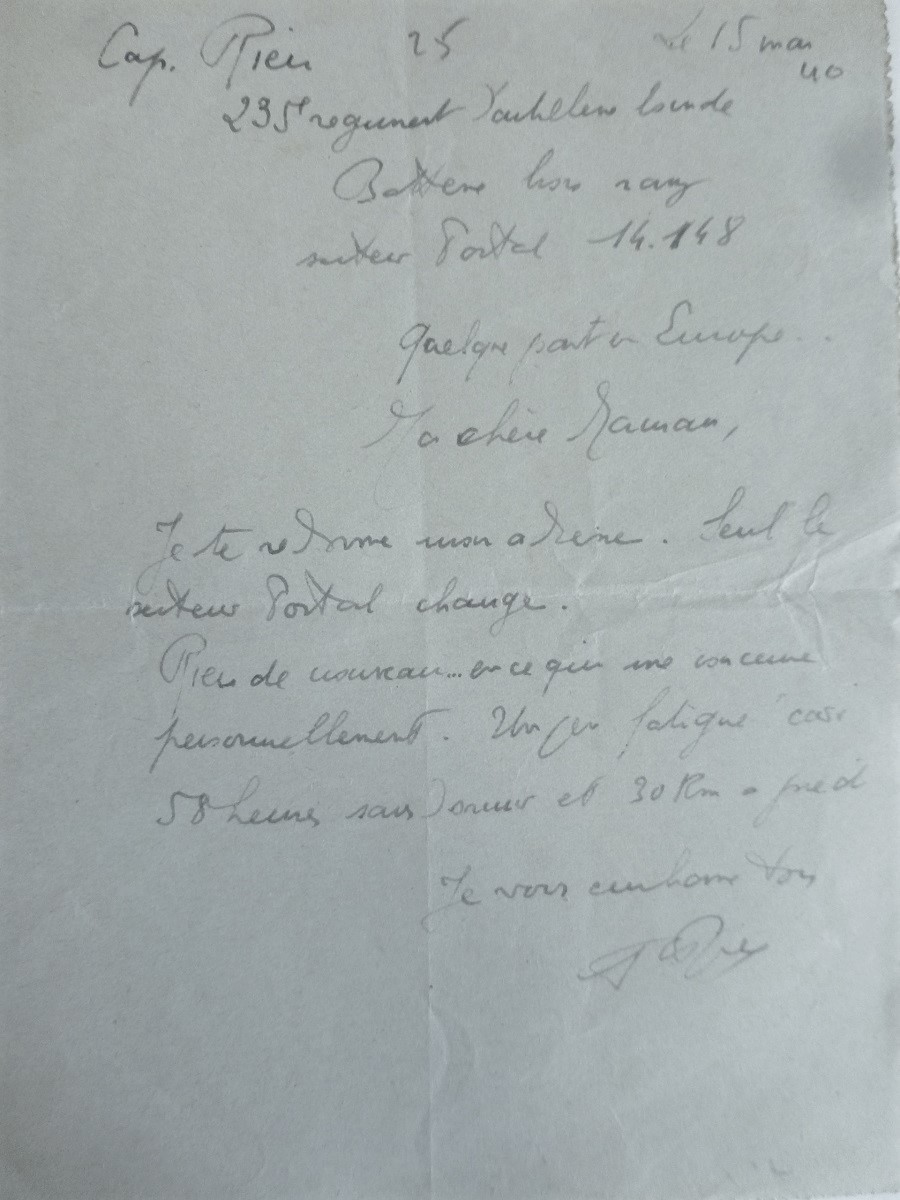 Cap. Rieu 25 Le 15 mai
40
235e regiment d'artillerie lourde
Batterie hors rang
secteur Postal 14.148
Quelque part en Europe...
Ma chère Maman,
Je te redonne mon adresse. Seul le
secteur Postal change.
Rien de nouveau... en ce qui me concerne
personnellement. Un peu fatigué car
58 heures sans dormir et 30 Km a pied
Je vous embrasse tous